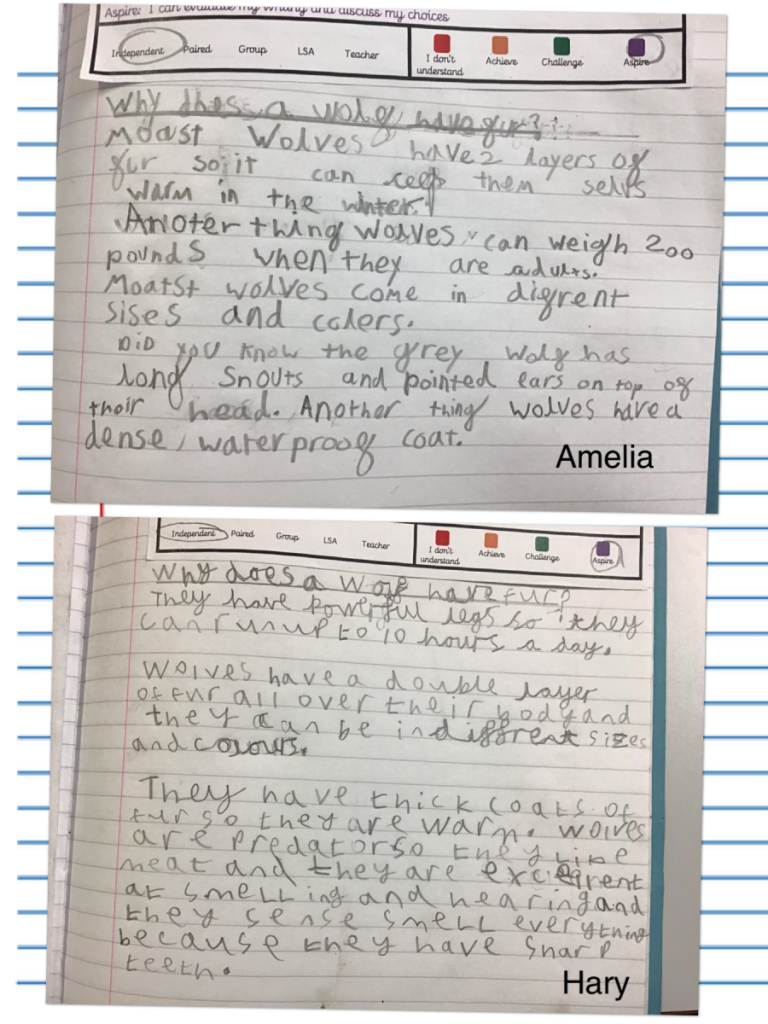 Aspire: I can evaluate my writing and discuss my choices
Independent Paired Group LSA Teacher
I don't understand Achieve Challenge Aspire
Why does a wolf have fur?
Moast Wolves have 2 layers of
fur so it can keep them selfs
warm in the winter.
Anoter thing wolves can weigh 200
pounds when they are adults.
Moatst wolves come in difrent
sises and colers.
DiD you know the grey wolf has
long snouts and pointed ears on top of
their head. Another thing wolves have a
dense, waterproof coat.
Amelia
Independent Paired Group LSA Teacher
I don't understand Achieve Challenge Aspire
Why does a wolf have fur?
They have powerful legs so they
can run up to 10 hours a day.
Wolves have a double layer
of fur all over their body and
they can be in diffrent sizes
and colours.
They have thick coats of
fur so they are warm. wolves
are predator so they like
meat and they are
at smelling and hearing and
they sense smell everything
because they have sharp
teeth.
Hary